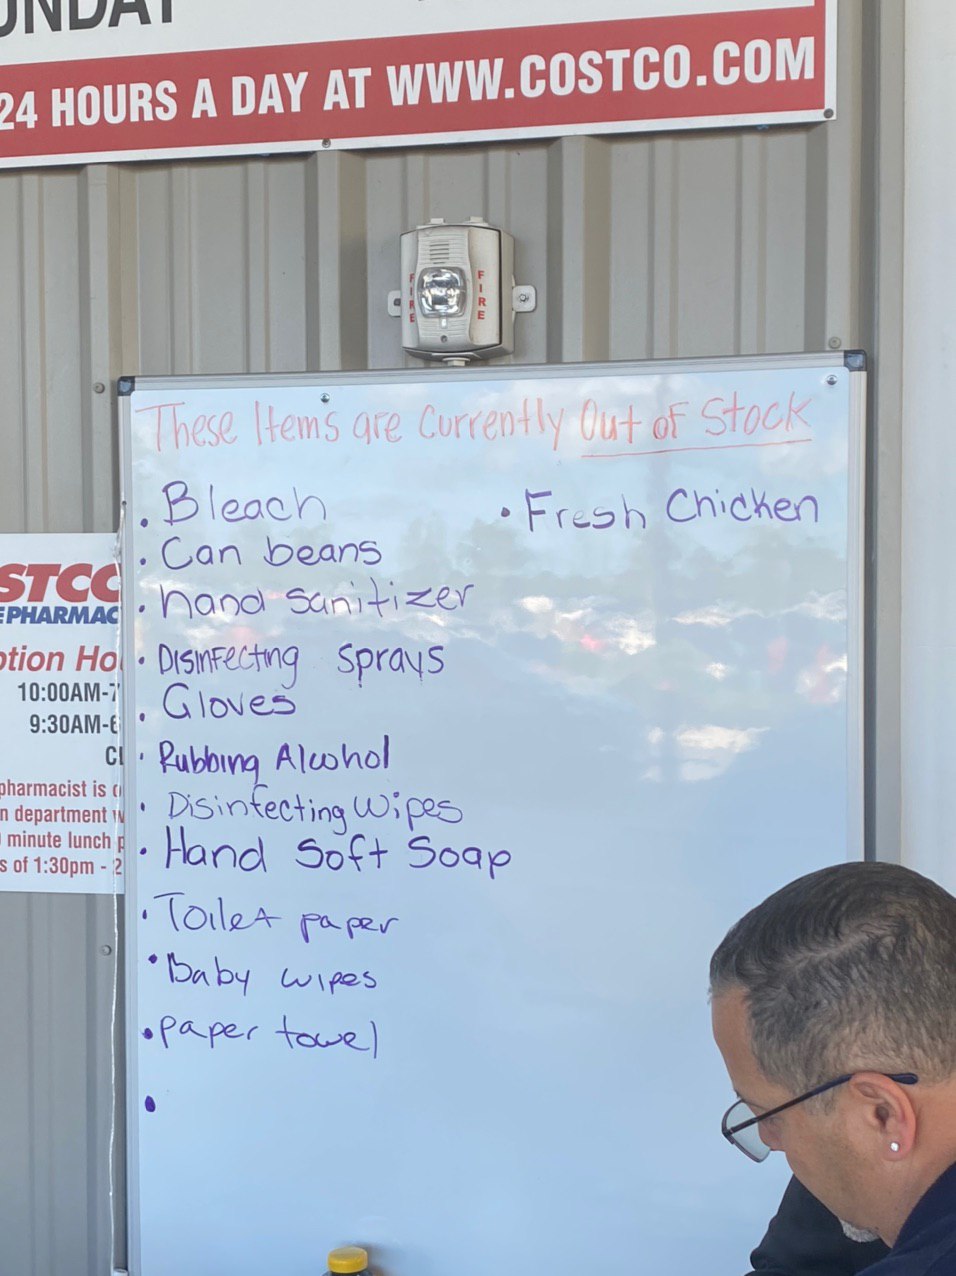 24 HOURS A DAY AT WWW.COSTCO.COM
FIRE
FIRE
These Items are Currently Out of Stock
. Bleach
. Can beans
. hand sanitizer
. Disinfecting sprays
. Gloves
. Rubbing Alcohol
. Disinfecting Wipes
. Hand Soft Soap
. Toilet paper
. Baby wipes
. paper towel
.
. Fresh Chicken
STCO
PHARMAC
tion Ho
10:00AM-7
9:30AM-6
CL
pharmacist is
n department
minute lunch
s of 1:30pm - 2